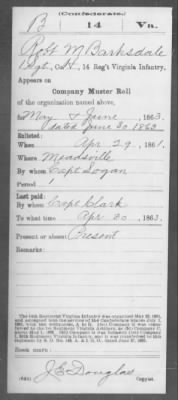 (Confederate.)
B 14 Va.
Robt M Barksdale
Sgt, Co. H, 14 Reg't Virginia Infantry.
Appears on
Company Muster Roll
of the organization named above,
for May & June, 1863.
dated June 30 1863
Enlisted:
When Apr 29, 1861.
Where Meadsville
By whom Capt Logan
Period
Last paid:
By whom Capt Clark
To what time Apr 30, 1863.
Present or absent Present
Remarks:
Book mark:
J E Douglas
(642) Copyist.